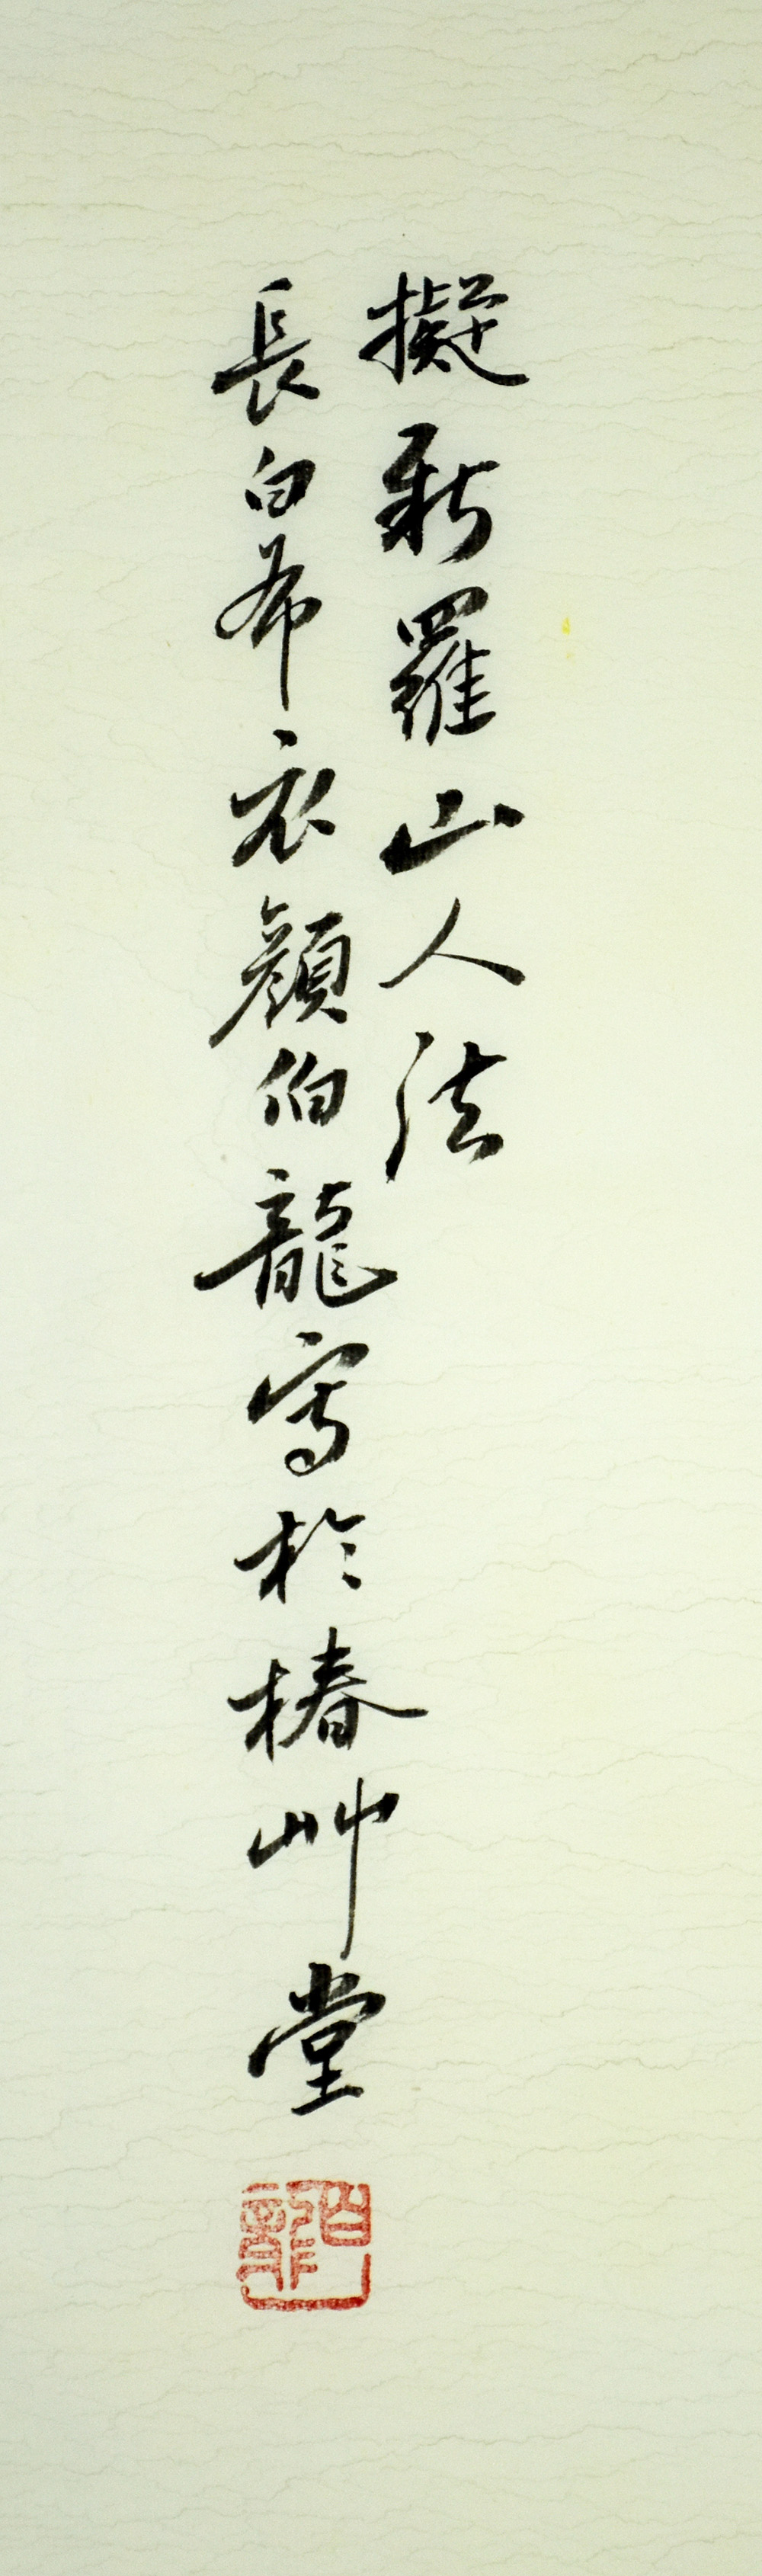 擬新羅山人法
長白布衣顏伯龍寫於椿艸堂
伯龍